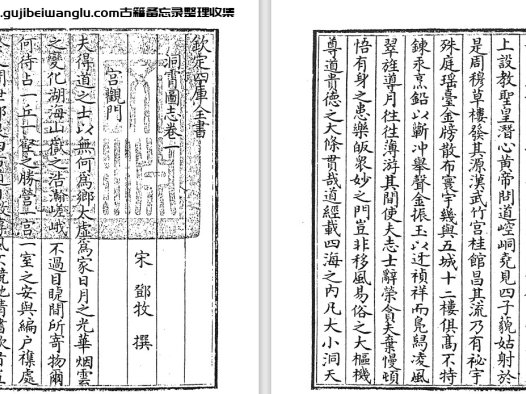 www.gujibeiwanglu.com古籍备忘录整理收集
欽定四庫全書
洞霄圖志卷一
宋 鄧牧 撰
宮觀門
夫得道之士以無何為鄉太虛為家日月之光華烟雲
之變化湖海山嶽之浩瀚嵯峨不過目睫間所寄物爾
何待占一丘一壑之勝營一宮一室之安與編戶襍處
上設教聖皇潛心黃帝問道崆峒堯見四子藐姑射於
是周穆草樓發其源漢武竹宮桂館昌其流乃有祕宇
殊庭瑤臺金牓散布寰宇幾與五城十二樓俱髙不特
鍊汞烹鉛以漸冲舉聲金振玉以迓禎祥而鳬舄凌風
翠旌導月往往薄游其間使夫志士辭榮貪夫棄慢頓
悟有身之患樂皈衆妙之門豈非移風易俗之大樞機
尊道貴德之大條貫哉道經載四海之内凡大小洞天